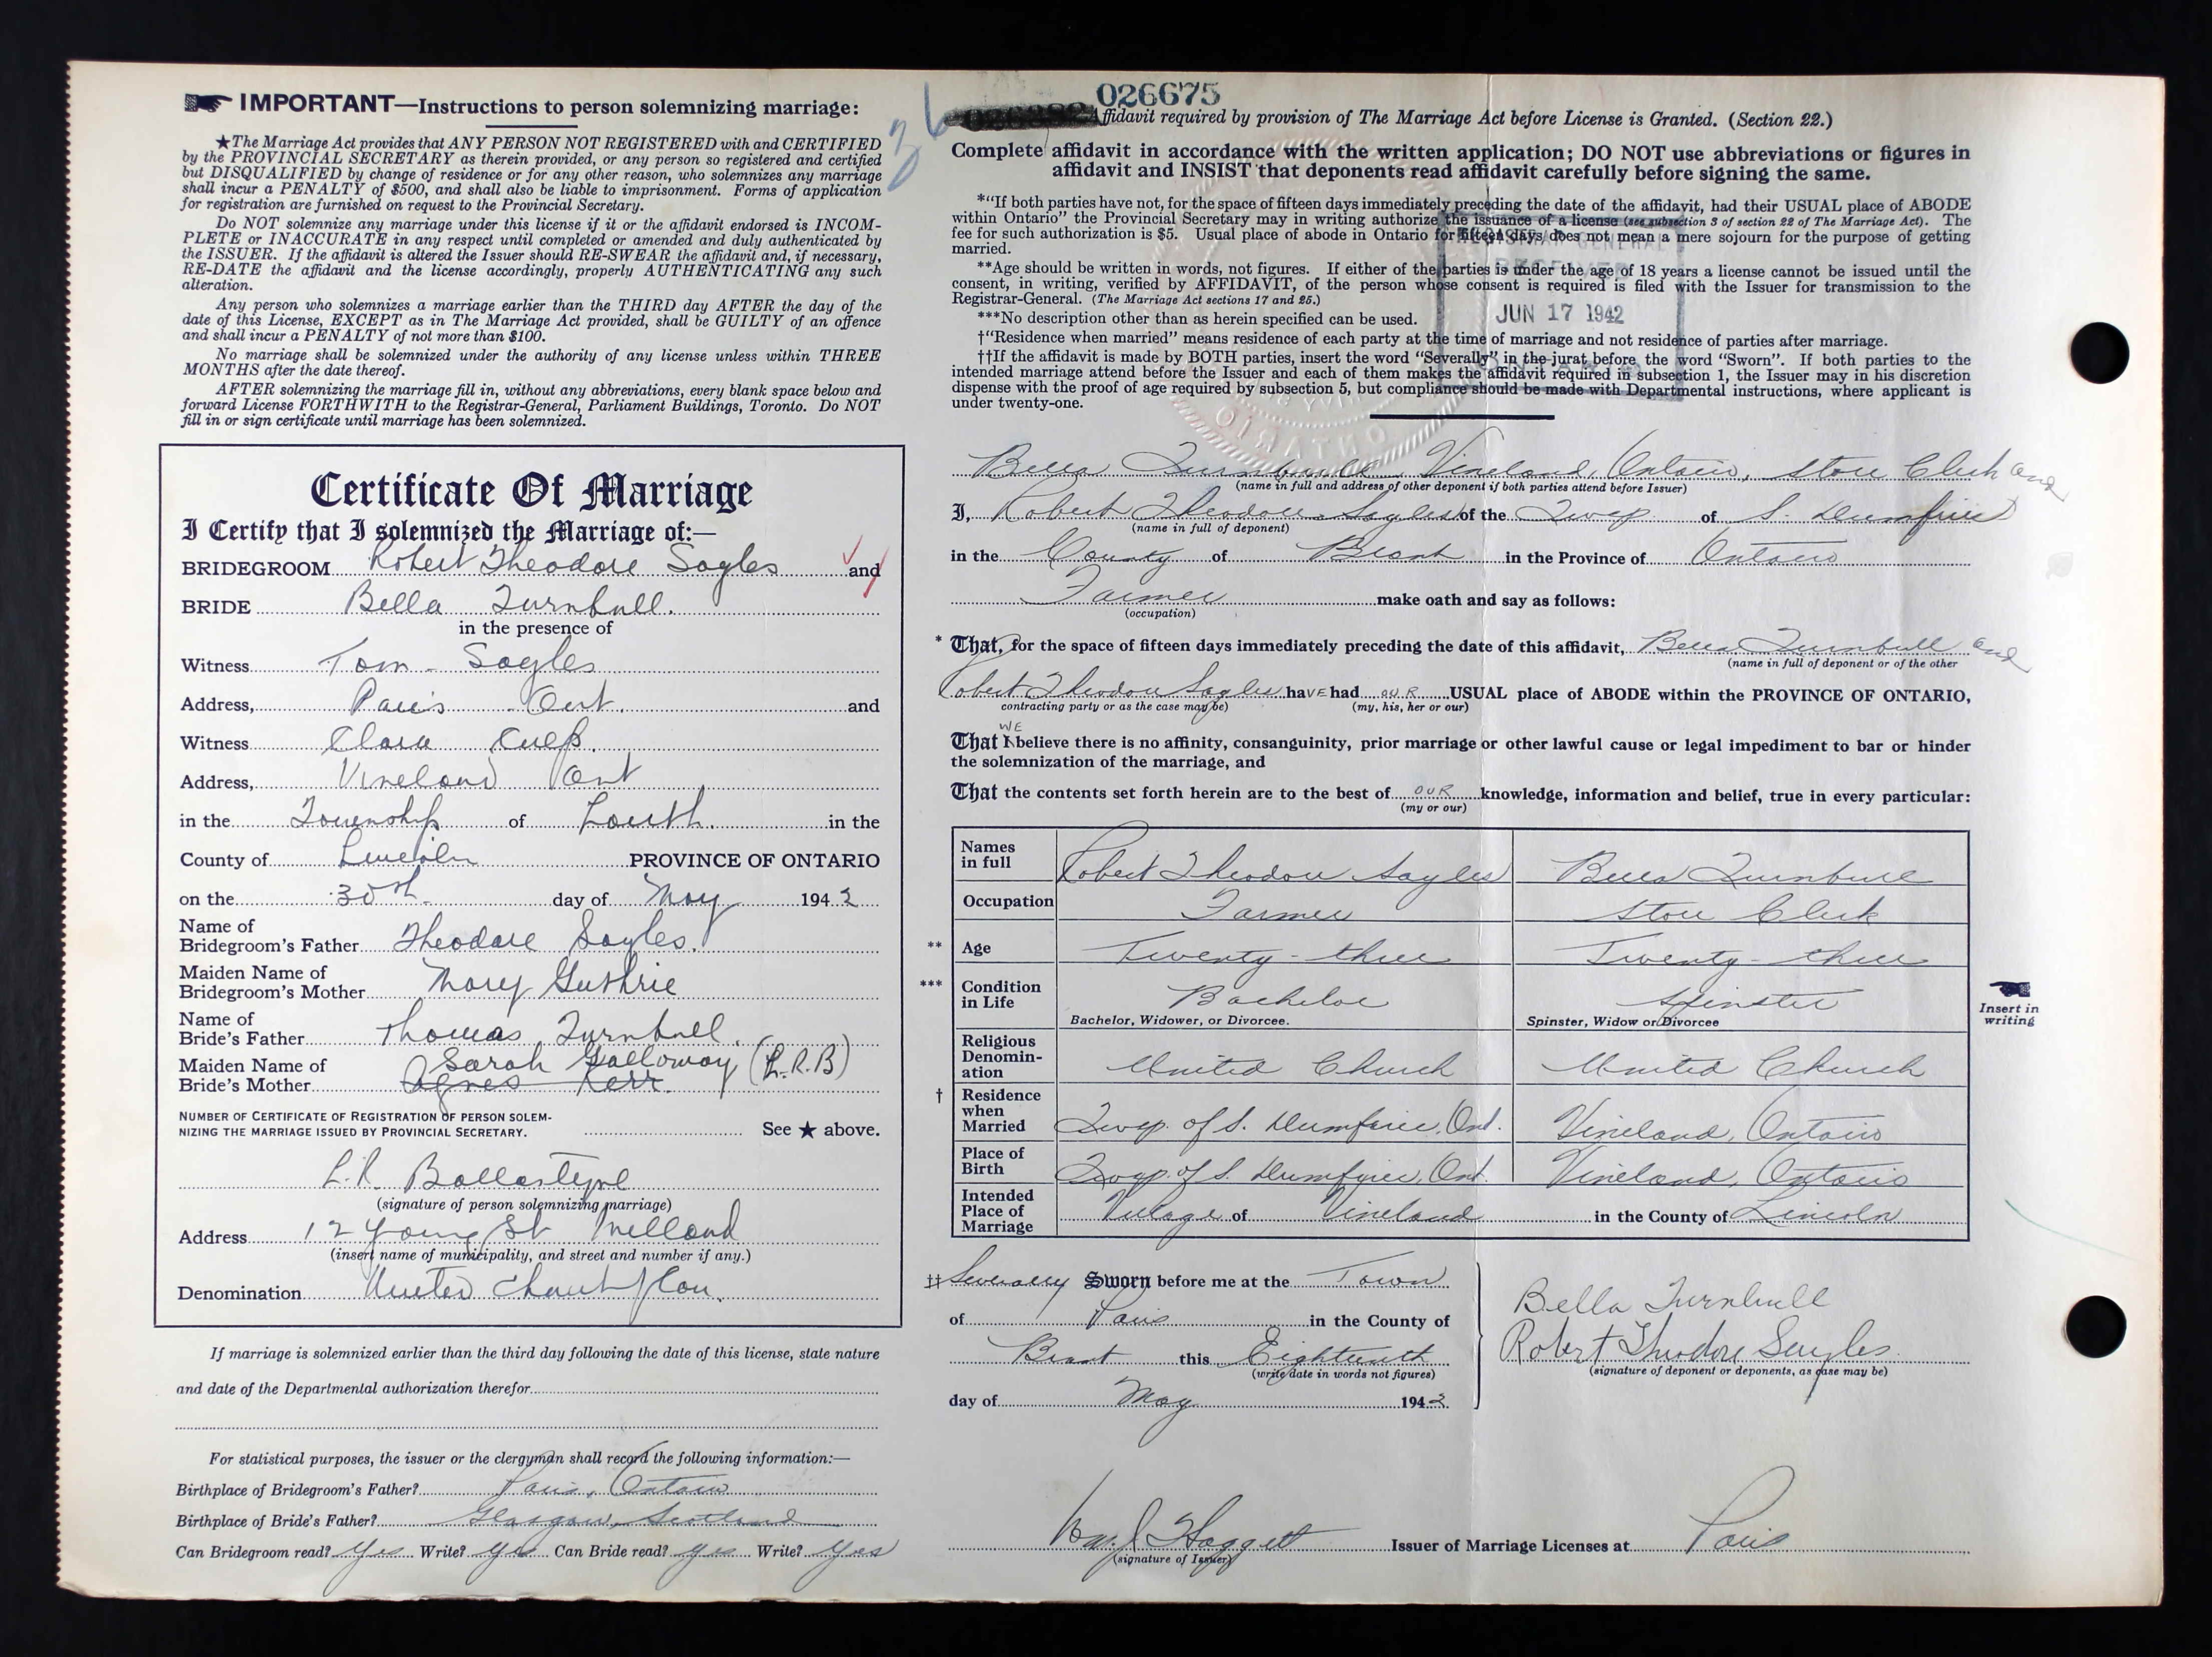 IMPORTANT—Instructions to person solemnizing marriage:
★The Marriage Act provides that ANY PERSON NOT REGISTERED with and CERTIFIED
by the PROVINCIAL SECRETARY as therein provided, or any person so registered and certified
but DISQUALIFIED by change of residence or for any other reason, who solemnizes any marriage
shall incur a PENALTY of $500, and shall also be liable to imprisonment. Forms of application
for registration are furnished on request to the Provincial Secretary.
Do NOT solemnize any marriage under this license if it or the affidavit endorsed is INCOM-
PLETE or INACCURATE in any respect until completed or amended and duly authenticated by
the ISSUER. If the affidavit is altered the Issuer should RE-SWEAR the affidavit and, if necessary,
RE-DATE the affidavit and the license accordingly, properly AUTHENTICATING any such
alteration.
Any person who solemnizes a marriage earlier than the THIRD day AFTER the day of the
date of this License, EXCEPT as in The Marriage Act provided, shall be GUILTY of an offence
and shall incur a PENALTY of not more than $100.
No marriage shall be solemnized under the authority of any license unless within THREE
MONTHS after the date thereof.
AFTER solemnizing the marriage fill in, without any abbreviations, every blank space below and
forward License FORTHWITH to the Registrar-General, Parliament Buildings, Toronto. Do NOT
fill in or sign certificate until marriage has been solemnized.
Certificate Of Marriage
I Certify that I solemnized the Marriage of:—
BRIDEGROOM Robert Theodore Sayles and
BRIDE Bella Turnbull.
in the presence of
Witness Tom Sayles
Address, Paris Ont. and
Witness Clara Culp.
Address, Vineland Ont
in the Township of Louth. in the
County of Lincoln PROVINCE OF ONTARIO
on the 30th day of May 1942
Name of
Bridegroom's Father Theodore Sayles.
Maiden Name of
Bridegroom's Mother Mary Guthrie
Name of
Bride's Father Thomas Turnbull.
Maiden Name of Sarah Galloway (L.R.B)
Bride's Mother Agnes Kerr.
NUMBER OF CERTIFICATE OF REGISTRATION OF PERSON SOLEM-
NIZING THE MARRIAGE ISSUED BY PROVINCIAL SECRETARY. See ★ above.
L.R. Ballantyne
(signature of person solemnizing marriage)
Address 12 Young St Welland
(insert name of municipality, and street and number if any.)
Denomination United Church of Can.
If marriage is solemnized earlier than the third day following the date of this license, state nature
and date of the Departmental authorization therefor
For statistical purposes, the issuer or the clergyman shall record the following information:—
Birthplace of Bridegroom's Father? Paris, Ontario
Birthplace of Bride's Father? Glasgow, Scotland
Can Bridegroom read? Yes Write? Yes Can Bride read? Yes Write? Yes
026675
Affidavit required by provision of The Marriage Act before License is Granted. (Section 22.)
Complete affidavit in accordance with the written application; DO NOT use abbreviations or figures in
affidavit and INSIST that deponents read affidavit carefully before signing the same.
*"If both parties have not, for the space of fifteen days immediately preceding the date of the affidavit, had their USUAL place of ABODE
within Ontario" the Provincial Secretary may in writing authorize the issuance of a license (see subsection 3 of section 22 of The Marriage Act). The
fee for such authorization is $5. Usual place of abode in Ontario for fifteen days does not mean a mere sojourn for the purpose of getting
married.
**Age should be written in words, not figures. If either of the parties is under the age of 18 years a license cannot be issued until the
consent, in writing, verified by AFFIDAVIT, of the person whose consent is required is filed with the Issuer for transmission to the
Registrar-General. (The Marriage Act sections 17 and 25.)
***No description other than as herein specified can be used.
JUN 17 1942
†"Residence when married" means residence of each party at the time of marriage and not residence of parties after marriage.
††If the affidavit is made by BOTH parties, insert the word "Severally" in the jurat before the word "Sworn". If both parties to the
intended marriage attend before the Issuer and each of them makes the affidavit required in subsection 1, the Issuer may in his discretion
dispense with the proof of age required by subsection 5, but compliance should be made with Departmental instructions, where applicant is
under twenty-one.
Bella Turnbull, Vineland, Ontario, Store Clerk and
(name in full and address of other deponent if both parties attend before Issuer)
I, Robert Theodore Sayles of the Twp. of S. Dumfries
(name in full of deponent)
in the County of Brant in the Province of Ontario
Farmer make oath and say as follows:
(occupation)
* That, for the space of fifteen days immediately preceding the date of this affidavit, Bella Turnbull and
(name in full of deponent or of the other
Robert Theodore Sayles haVE had OUR USUAL place of ABODE within the PROVINCE OF ONTARIO,
contracting party or as the case may be) (my, his, her or our)
WE
That I believe there is no affinity, consanguinity, prior marriage or other lawful cause or legal impediment to bar or hinder
the solemnization of the marriage, and
That the contents set forth herein are to the best of OUR knowledge, information and belief, true in every particular:
(my or our)
Names
in full Robert Theodore Sayles Bella Turnbull
Occupation Farmer Store Clerk
** Age Twenty-three Twenty-three
*** Condition
in Life Bachelor Spinster
Bachelor, Widower, or Divorcee. Spinster, Widow or Divorcee
Insert in
writing
Religious
Denomin-
ation United Church United Church
† Residence
when
Married Twp. of S. Dumfries, Ont. Vineland, Ontario
Place of
Birth Twp. of S. Dumfries, Ont. Vineland, Ontario
Intended
Place of
Marriage Village of Vineland in the County of Lincoln
†† Severally Sworn before me at the Town
of Paris in the County of
Brant this Eighteenth
(write date in words not figures)
day of May 1942
Bella Turnbull
Robert Theodore Sayles
(signature of deponent or deponents, as case may be)
Wm. J. Haggett Issuer of Marriage Licenses at Paris
(signature of Issuer)